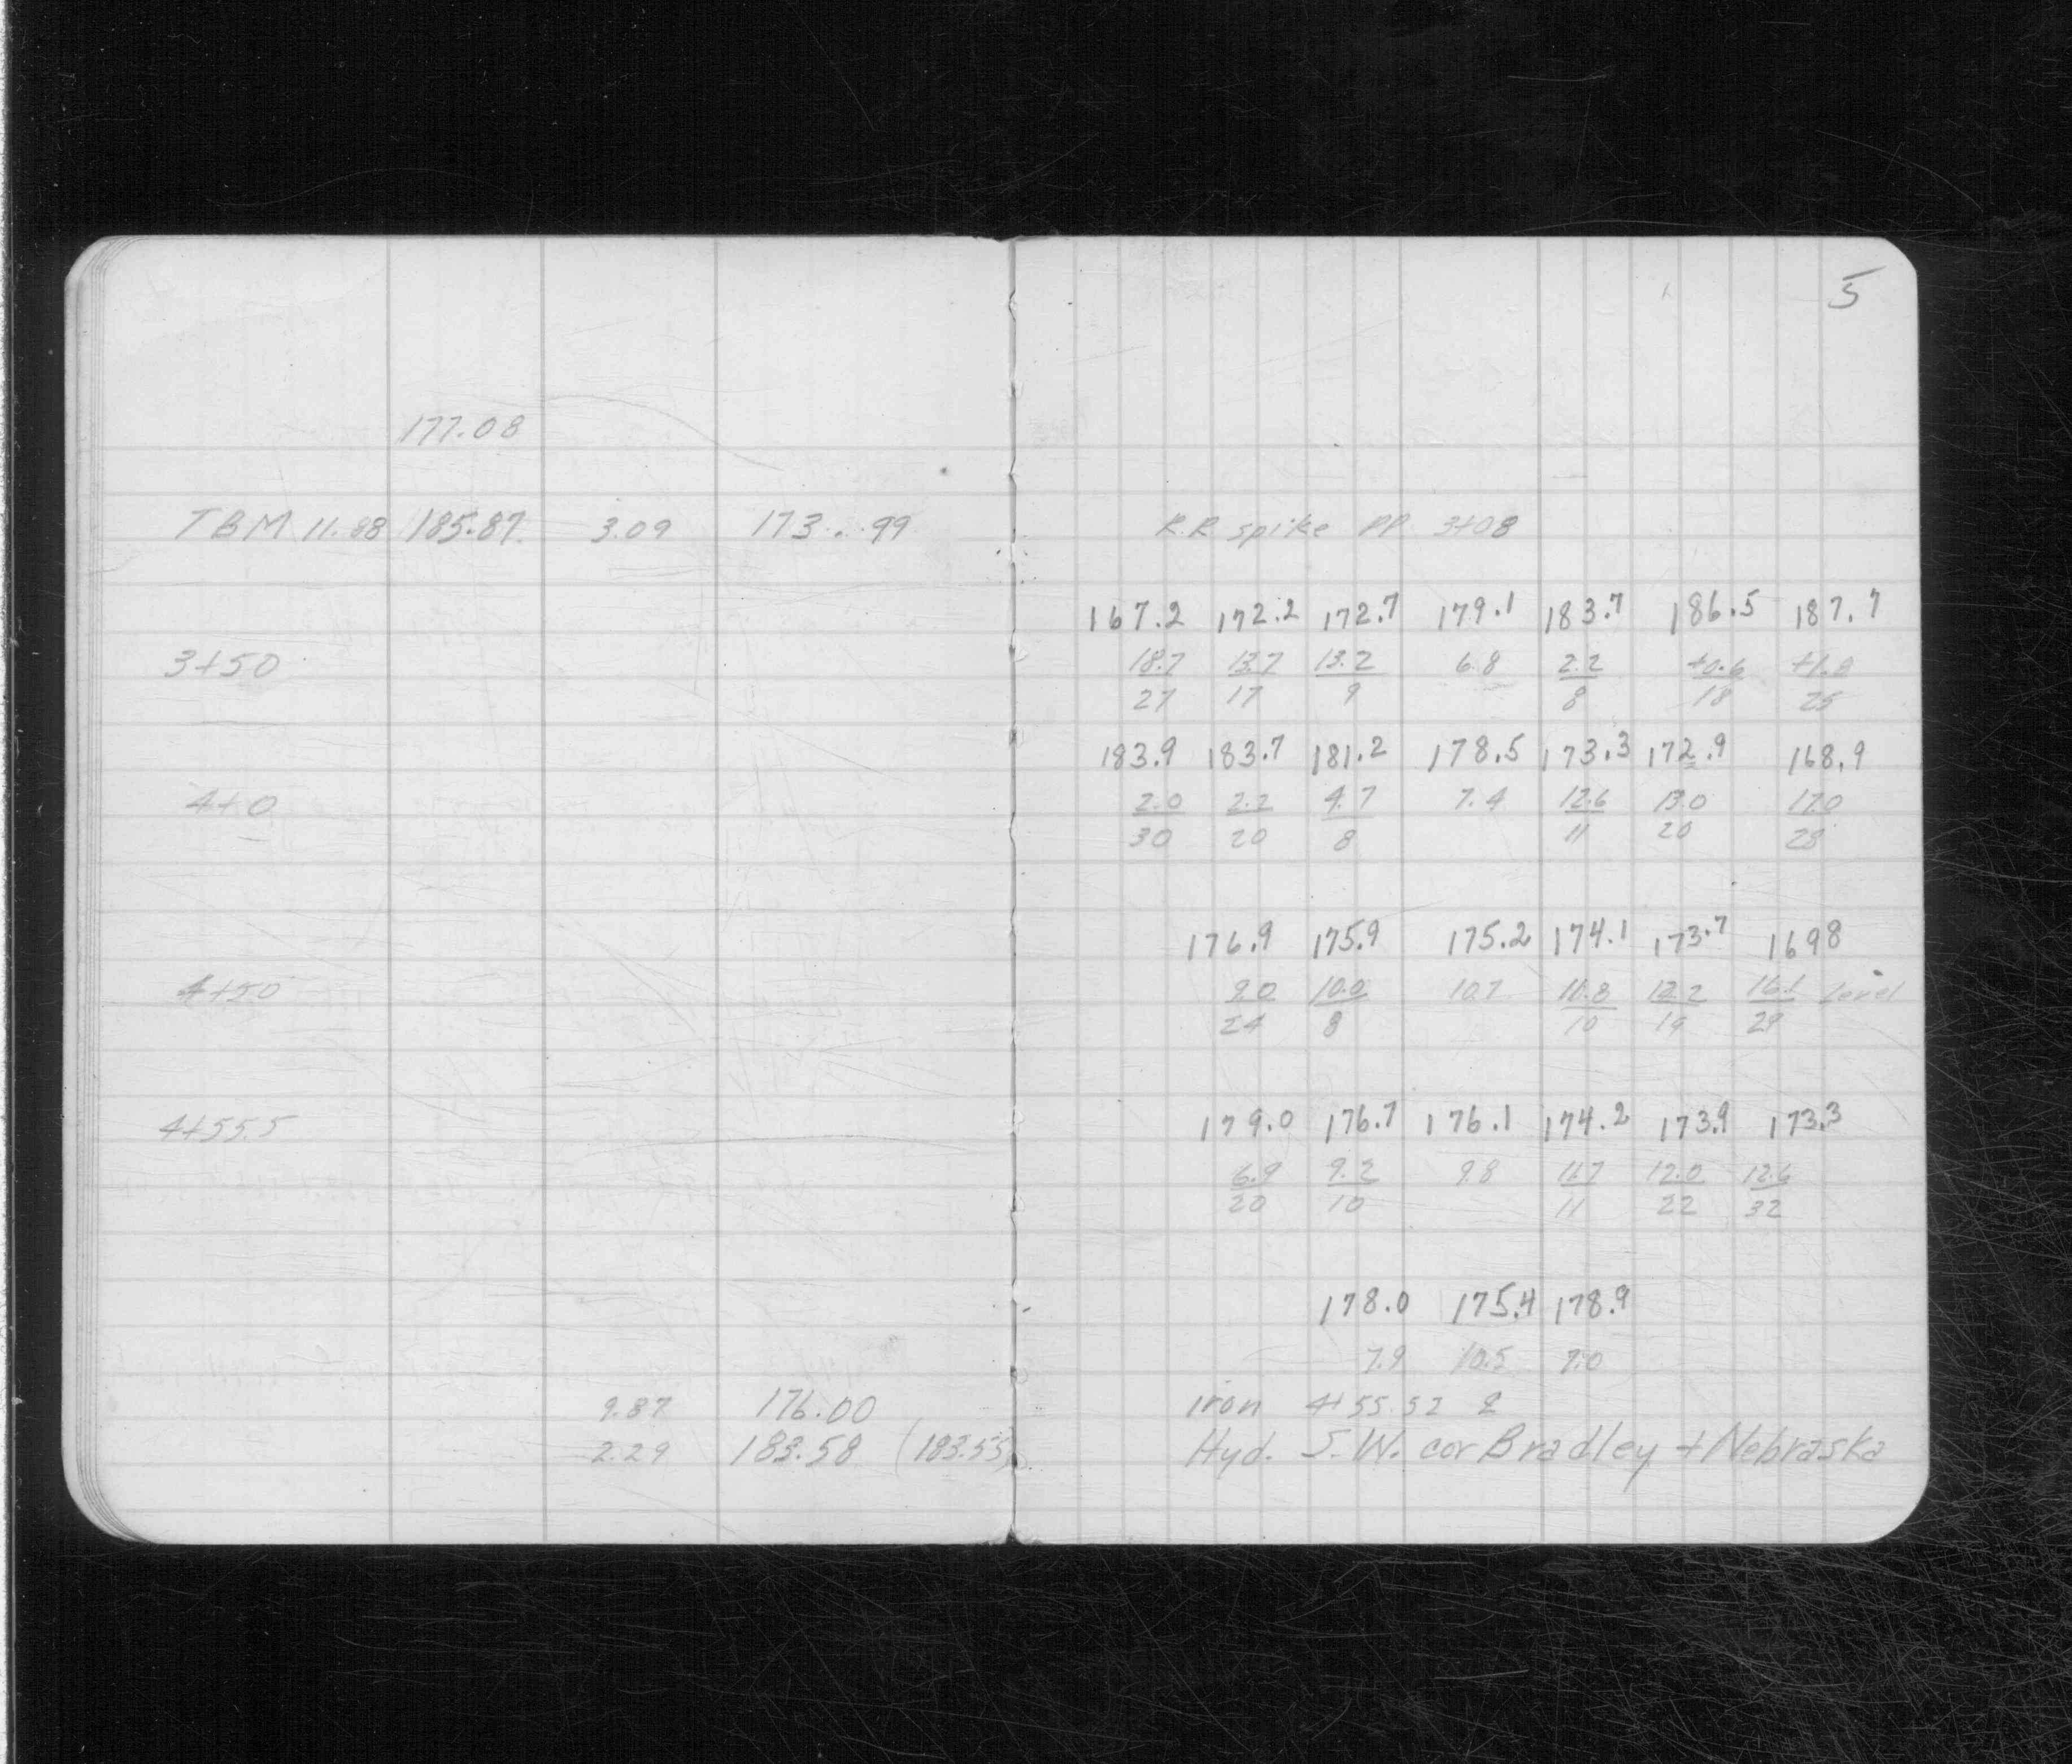 5
177.08
TBM 11.88 185.87 3.09 173.99 R.R spike PP 3+08
167.2 172.2 172.7 179.1 183.7 186.5 187.7
3+50 18.7 13.7 13.2 6.8 2.2 +0.6 +1.8
27 17 9 8 18 25
183.9 183.7 181.2 178.5 173.3 172.9 168.9
4+0 2.0 2.2 4.7 7.4 12.6 13.0 17.0
30 20 8 11 20 28
176.9 175.9 175.2 174.1 173.7 1698
4+50 9.0 10.0 10.7 11.8 12.2 16.1 level
24 8 10 19 28
4+55.5 179.0 176.7 176.1 174.2 173.9 173.3
6.9 9.2 9.8 11.7 12.0 12.6
20 10 11 22 32
178.0 175.4 178.9
7.9 10.5 7.0
9.87 176.00 iron 4+55.52
2.29 183.58 (183.55) Hyd. S.W. cor Bradley + Nebraska